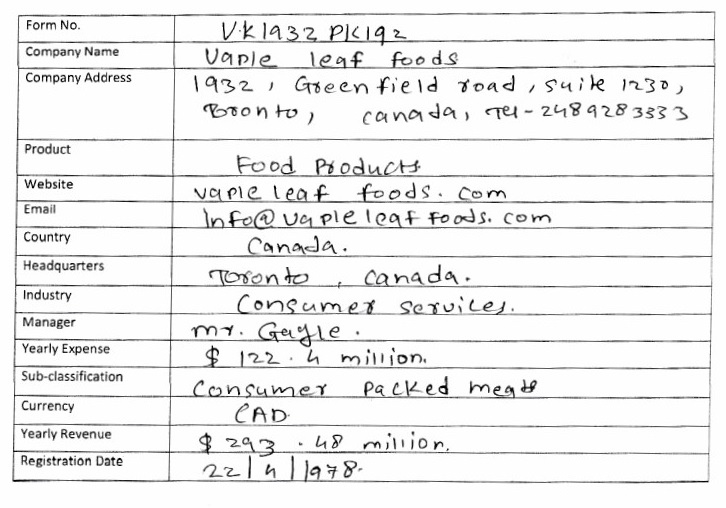 Form No. V.K1932PK192
Company Name Vaple leaf foods
Company Address 1932, Greenfield road, suite 1230,
Bronto, Canada, Tel-2489283333
Product Food Products
Website vapleleaf foods.com
Email Info@vapleleaffoods.com
Country Canada.
Headquarters Toronto, Canada.
Industry Consumer services.
Manager Mr. Gayle.
Yearly Expense $ 122.4 million.
Sub-classification Consumer Packed meats
Currency CAD.
Yearly Revenue $ 293.48 million.
Registration Date 22/4/1978.